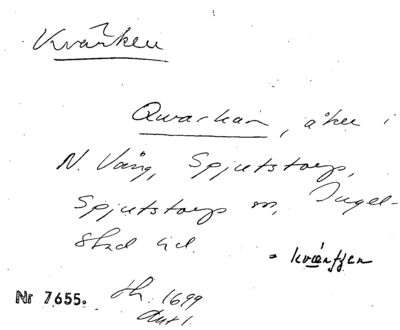 Kvarken
Qvarkan, åker i
N. Vång, Spjutstorp,
Spjutstorp sn, Ingel-
stad hd.
Nr 7655. 1699